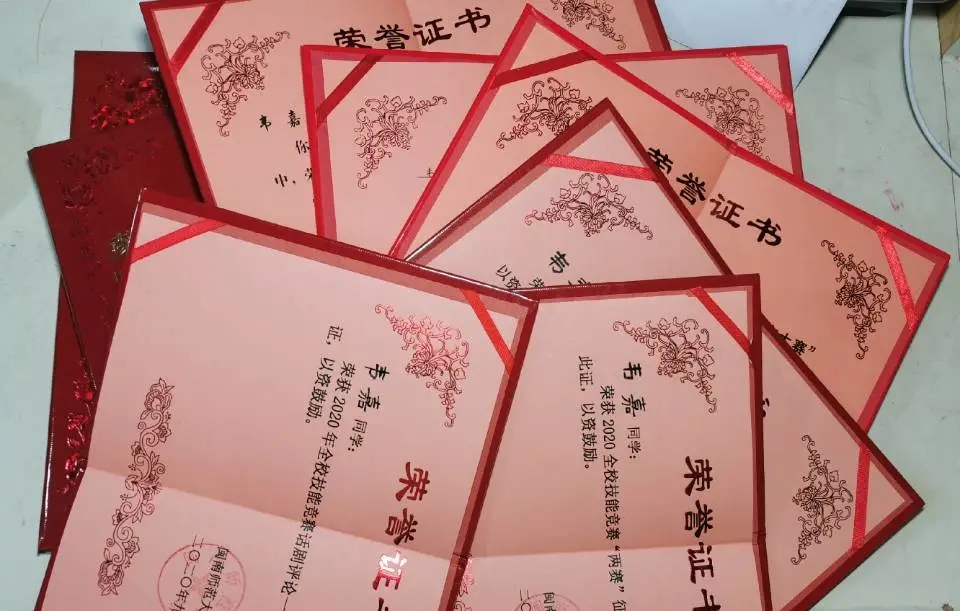 荣誉证书
韦嘉
荣誉证书
大赛”
韦
以资
荣誉证
韦嘉 同学:
荣获2020年全校技能竞赛话剧评论一
证,以资鼓励。
闽南师范大
二〇二〇年
荣誉证书
韦嘉 同学:
荣获2020全校技能竞赛“两赛”征
此证,以资鼓励。
闽南师
二〇